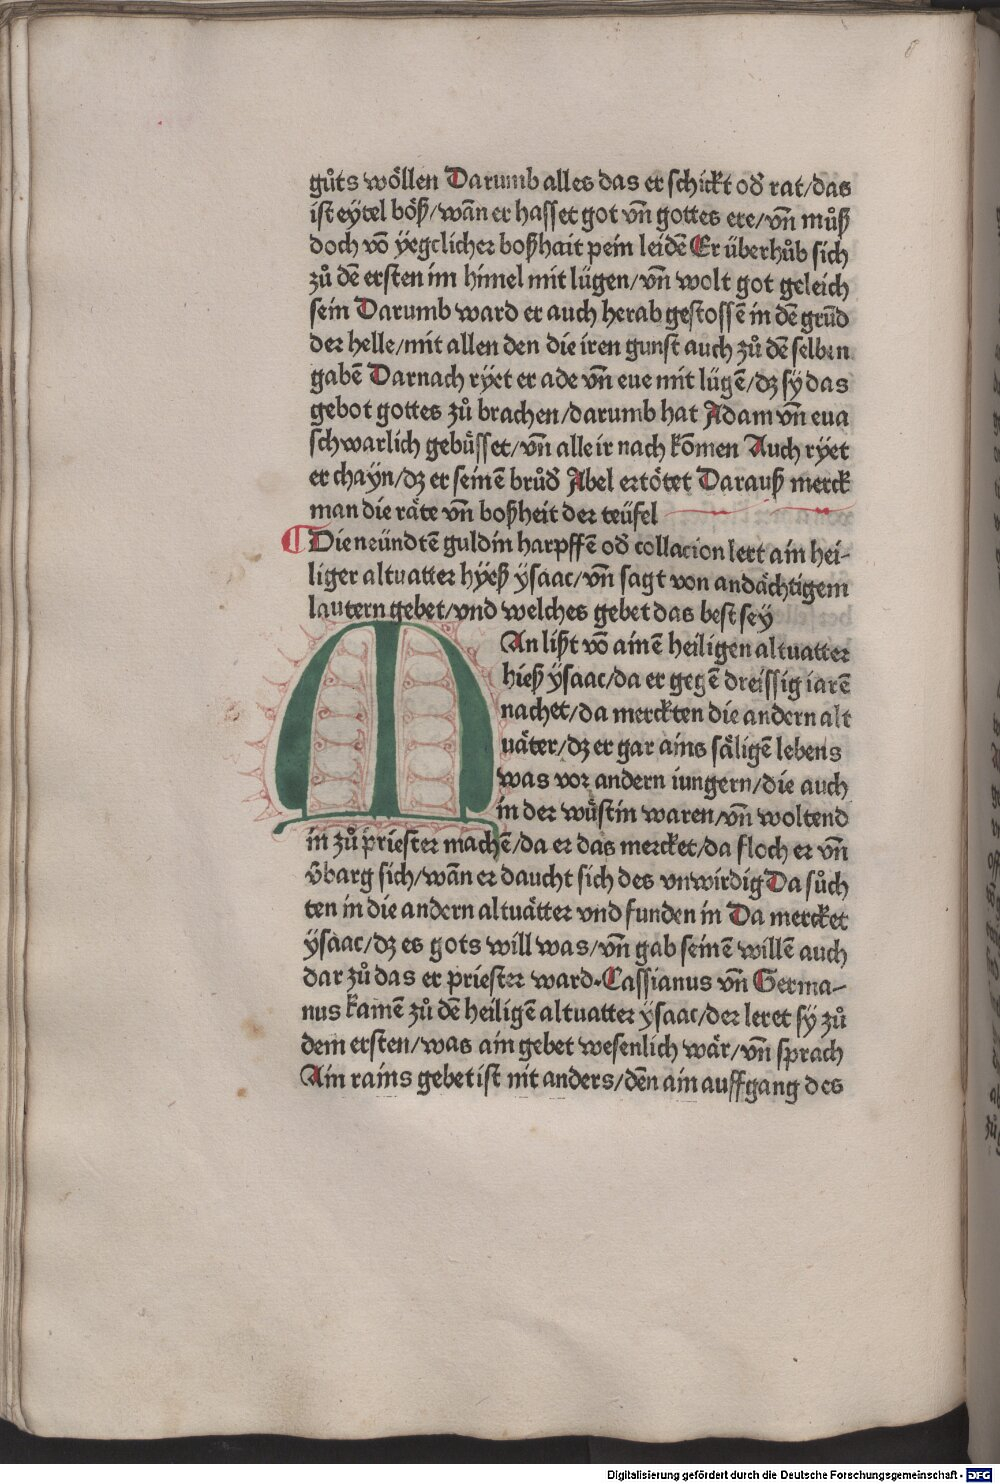 gůts wöllen Darumb alles das er schickt od̃ rat/das
ist eytel böß/wañ er hasset got vñ gottes ere/vñ můß
doch vō yegclicher boßhait pein leidē Er überhůb sich
zů dē ersten im himel mit lügen/vñ wolt got geleich
sein Darumb ward er auch herab gestossē in dē grūd
der helle/mit allen den die iren gunst auch zů dē selben
gabē Darnach ryet er ade vñ eue mit lügē/dz sy das
gebot gottes zů brachen/darumb hat Adam vñ eua
schwarlich gebüsset/vñ alle ir nach komen Auch ryet
er chayn/dz er seinē brůd̃ Abel ertötet Darauß merck
man die räte vñ boßheit der teüfel
Die neündtē guldin harpffē od̃ collacion lert ain hei-
liger altuatter hyeß ysaac/vñ sagt von andächtigem
lautern gebet/vnd welches gebet das best sey
MAn lißt vō ainē heiligen altuatter
hieß ysaac/da er gegē dreissig iarē
nachet/da merckten die andern alt
uäter/dz er gar ains säligē lebens
was vor andern iungern/die auch
in der wüstin waren/vñ woltend
in zů priester machē/da er das mercket/da floch er vñ
v̄barg sich/wañ er daucht sich des vnwirdig Da sůch
ten in die andern altuätter vnd funden in Da mercket
ysaac/dz es gots will was/vñ gab seinē willē auch
dar zů das er priester ward.Cassianus vñ Germa-
nus kamē zů dē heiligē altuatter ysaac/der leret sy zů
dem ersten/was ain gebet wesenlich wär/vñ sprach
Ain rains gebet ist nit anders/dēn ain auffgang des
Digitalisierung gefördert durch die Deutsche Forschungsgemeinschaft - DFG